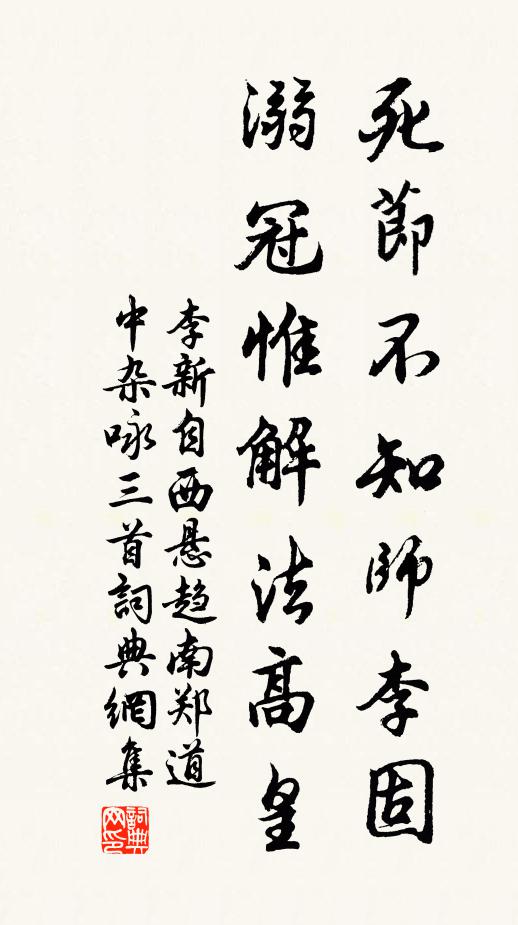 死節不知師李固
溺冠惟解法高皇
李新自西悬趋南郑道
中杂咏三首詞典網集
詞典网印